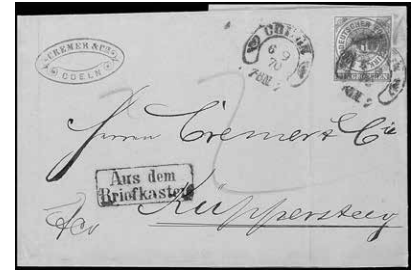 CREMER & Co.
COELN
COELN
6 9
70
Herrn Cremer & Cie
Aus dem
Briefkasten
Küppersteg